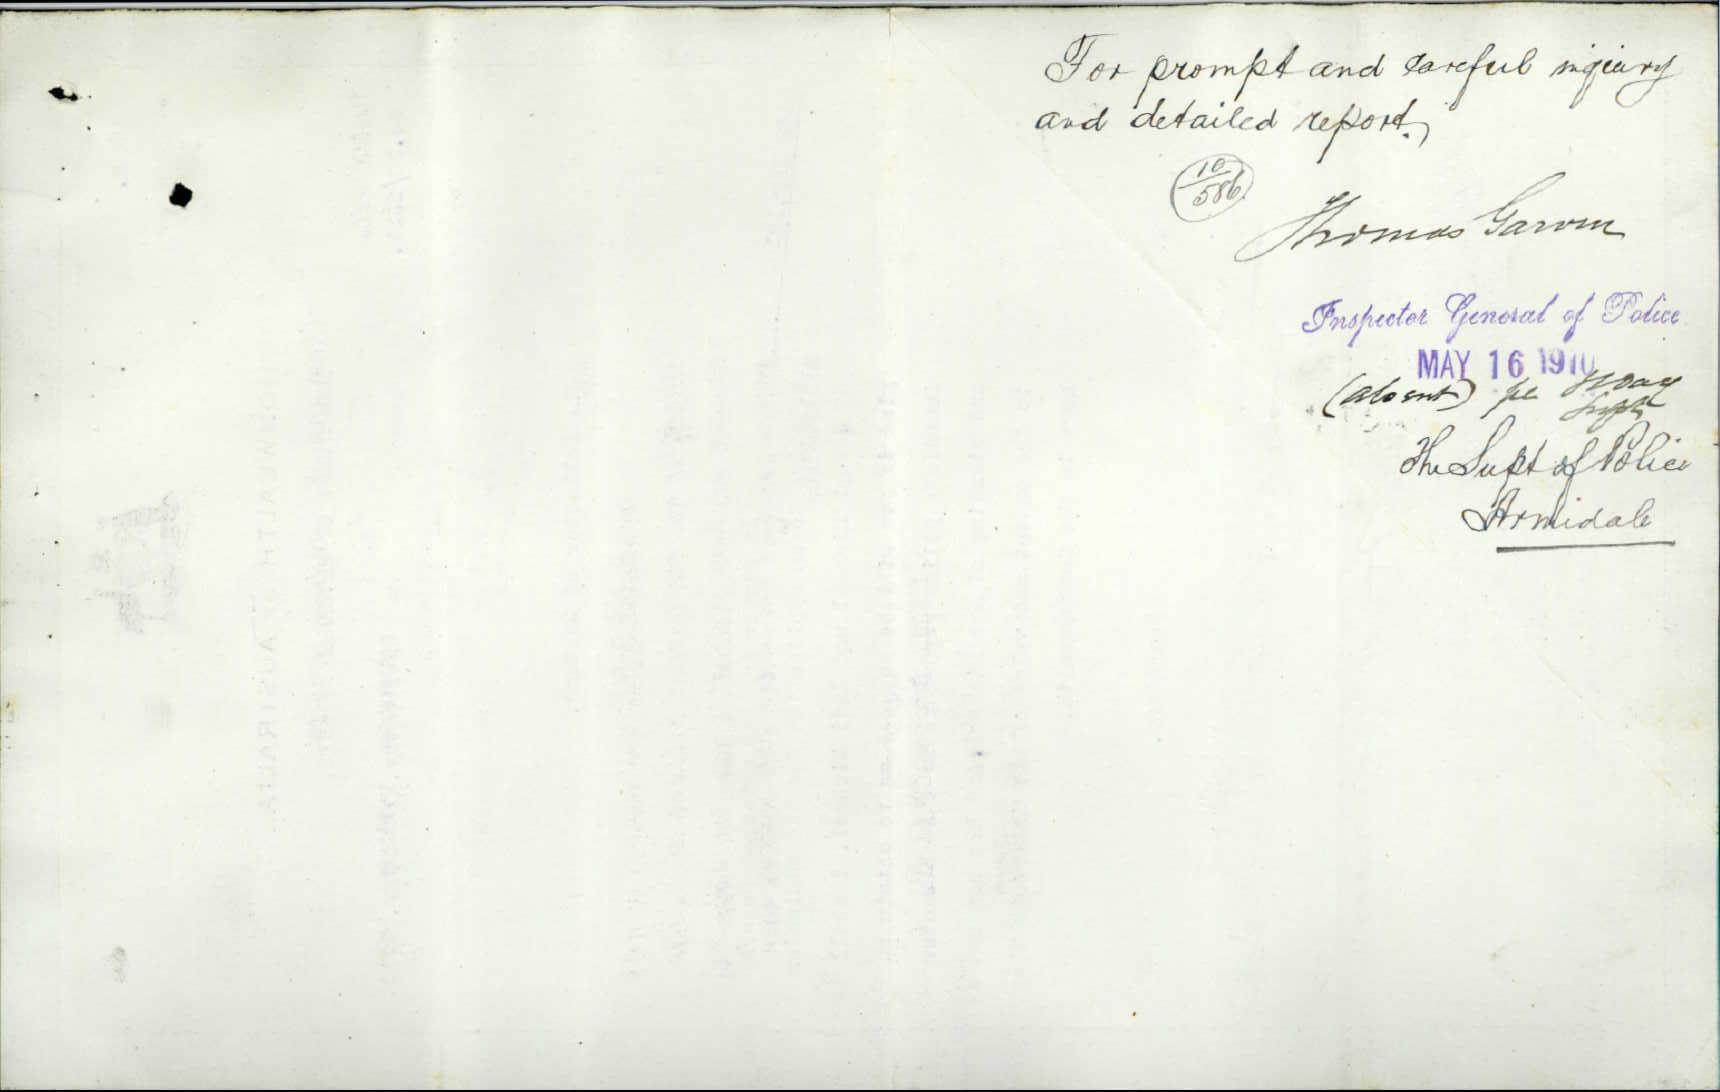 For prompt and careful inquiry
and detailed report.
10
586
Thomas Garvin
Inspector General of Police
MAY 16 1910
(absent) per
Supt
The Supt of Police
Armidale